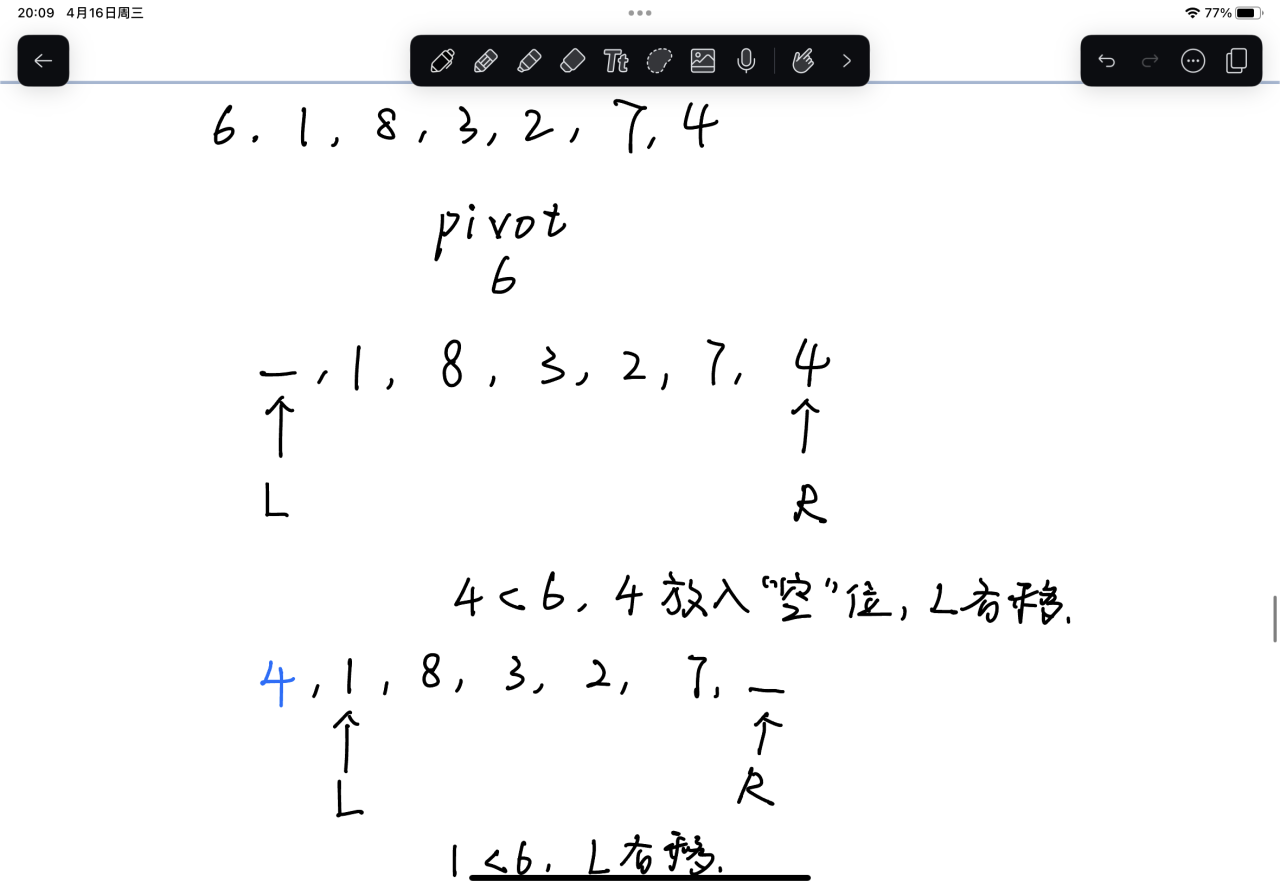 20:09 4月16日周三
77%
Tt
6. 1, 8, 3, 2, 7, 4
pivot
6
_, 1, 8, 3, 2, 7, 4
L R
4<6, 4放入“空”位, L右移.
4, 1, 8, 3, 2, 7, _
L R
1<6, L右移.